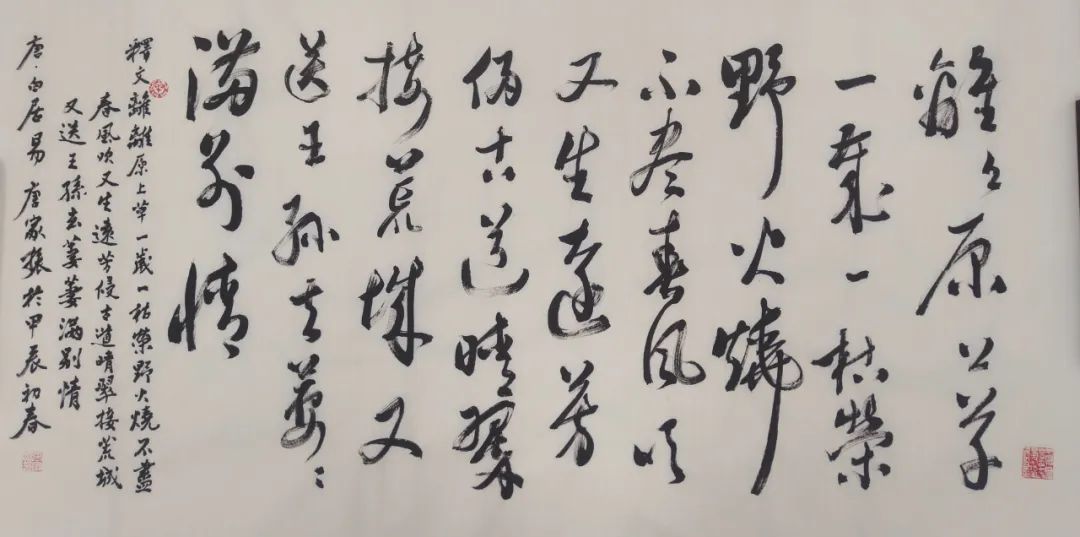 離々原上草
一歲一枯榮
野火燒
不盡春風吹
又生遠芳
侵古道晴翠
接荒城又
送王孫去萋々
滿別情
釋文離離原上草一歲一枯榮野火燒不盡
春風吹又生遠芳侵古道晴翠接荒城
又送王孫去萋萋滿別情
唐·白居易 唐家振於甲辰初春